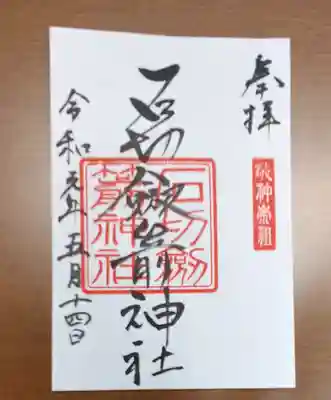 奉拝
石切劔箭神社
石切劔箭神社
令和元年五月十四日